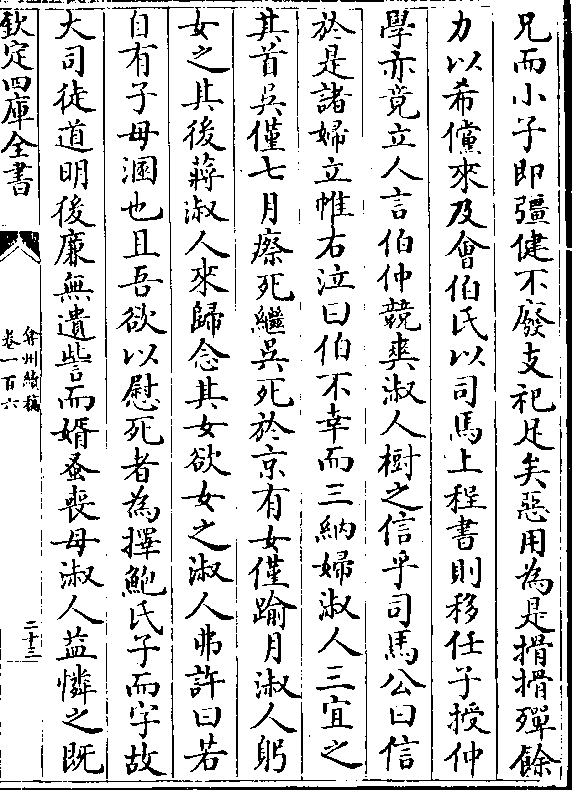 兄而小子即彊健不廢支祀足矣惡用為是搰搰殫餘
力以希儻來及會伯氏以司馬上程書則移任子授仲
學亦竟立人言伯仲競爽淑人樹之信乎司馬公曰信
於是諸婦立帷右泣曰伯不幸而三納婦淑人三宜之
其首吳僅七月瘵死繼吳死於京有女僅踰月淑人躬
女之其後蔣淑人來歸念其女欲女之淑人弗許曰若
自有子母溷也且吾欲以慰死者為擇鮑氏子而字故
大司徒道明後廉無遺訾而婿蚤喪母淑人益憐之既
欽定四庫全書
弇州續稿
卷一百六
二十三